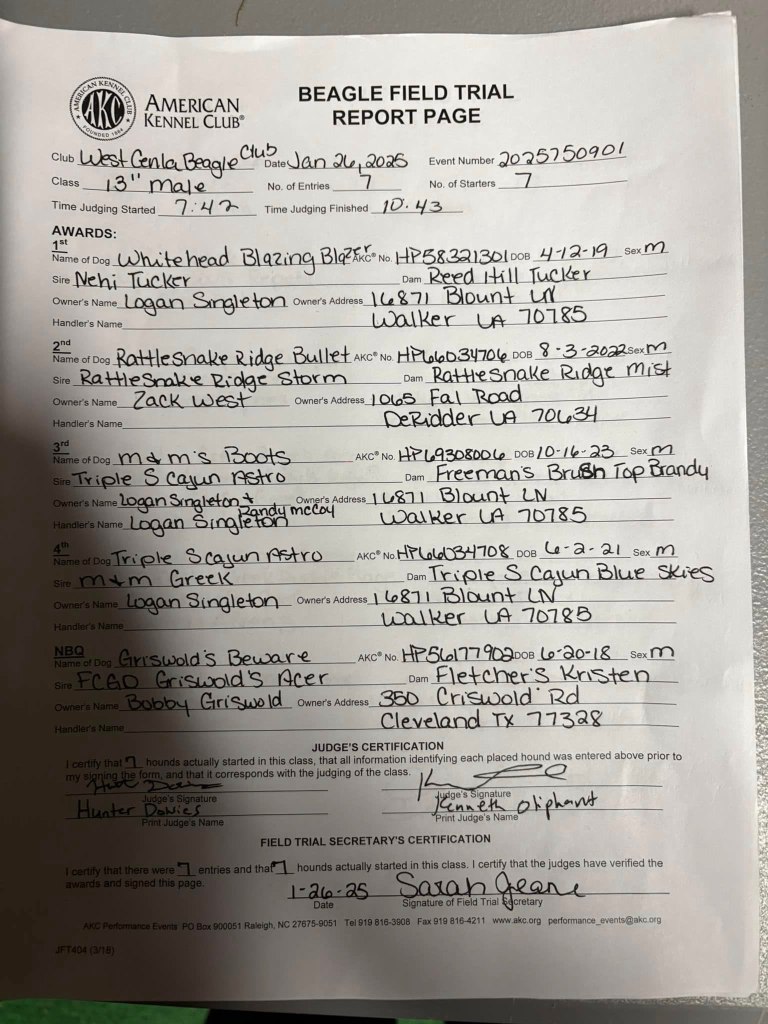 AMERICAN KENNEL CLUB
AKC
FOUNDED 1884
AMERICAN
KENNEL CLUB®
BEAGLE FIELD TRIAL
REPORT PAGE
Club West Cenla Beagle Club Date Jan 26, 2025 Event Number 2025750901
Class 13" male No. of Entries 7 No. of Starters 7
Time Judging Started 7:42 Time Judging Finished 10:43
AWARDS:
1st
Name of Dog Whitehead Blazing Blazer AKC® No. HP58321301 DOB 4-12-19 Sex m
Sire Nehi Tucker Dam Reed Hill Tucker
Owner's Name Logan Singleton Owner's Address 16871 Blount LN
Handler's Name Walker LA 70785
2nd
Name of Dog Rattlesnake Ridge Bullet AKC® No. HP66034706 DOB 8-3-2022 Sex m
Sire Rattlesnake Ridge Storm Dam Rattlesnake Ridge Mist
Owner's Name Zack West Owner's Address 1065 Fal Road
Handler's Name DeRidder LA 70634
3rd
Name of Dog m&m's Boots AKC® No. HP69308006 DOB 10-16-23 Sex m
Sire Triple S Cajun Astro Dam Freeman's Brush Top Brandy
Owner's Name Logan Singleton + Randy McCoy Owner's Address 16871 Blount LN
Handler's Name Logan Singleton Walker LA 70785
4th
Name of Dog Triple S Cajun Astro AKC® No. HP66034708 DOB 6-2-21 Sex m
Sire m+m Greek Dam Triple S Cajun Blue Skies
Owner's Name Logan Singleton Owner's Address 16871 Blount LN
Handler's Name Walker LA 70785
NBQ
Name of Dog Griswold's Beware AKC® No. HP56177902 DOB 6-20-18 Sex m
Sire FCGD Griswold's Acer Dam Fletcher's Kristen
Owner's Name Bobby Griswold Owner's Address 350 Criswold Rd
Handler's Name Cleveland TX 77328
JUDGE'S CERTIFICATION
I certify that 7 hounds actually started in this class, that all information identifying each placed hound was entered above prior to
my signing the form, and that it corresponds with the judging of the class.
Judge's Signature Judge's Signature
Hunter Davies Kenneth Oliphant
Print Judge's Name Print Judge's Name
FIELD TRIAL SECRETARY'S CERTIFICATION
I certify that there were 7 entries and that 7 hounds actually started in this class. I certify that the judges have verified the
awards and signed this page.
1-26-25 Sarah Jeane
Date Signature of Field Trial Secretary
AKC Performance Events PO Box 900051 Raleigh, NC 27675-9051 Tel 919 816-3908 Fax 919 816-4211 www.akc.org performance_events@akc.org
JFT404 (3/18)